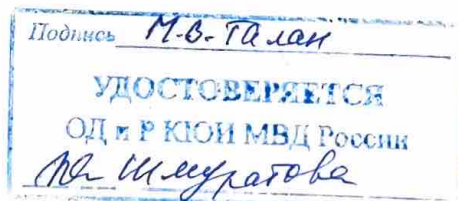 Подпись М.В. Талан
УДОСТОВЕРЯЕТСЯ
ОД и Р КЮИ МВД России
Шмуратова